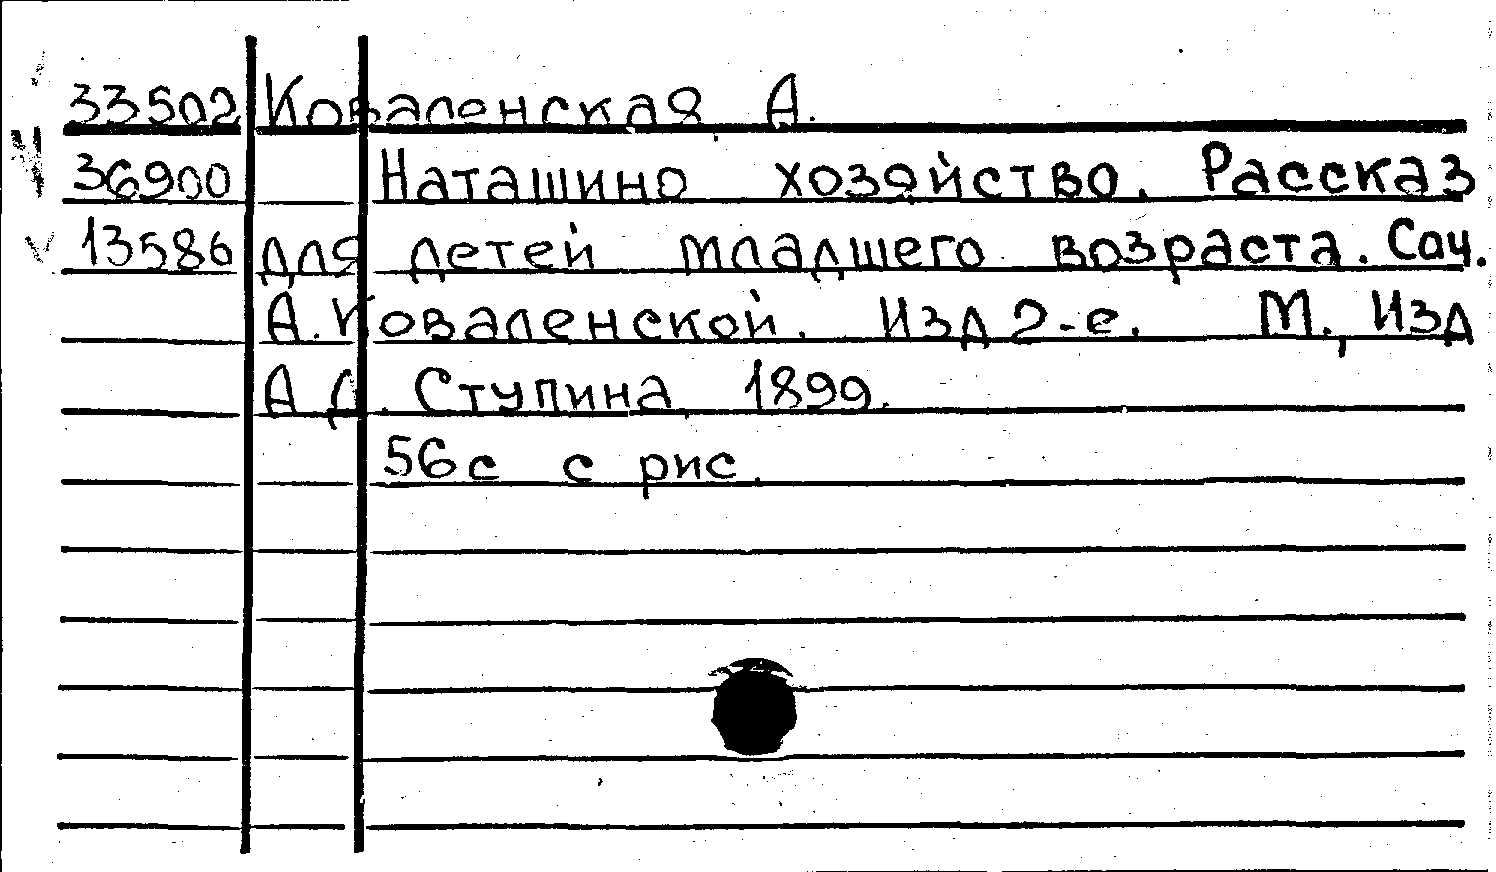 33502 Коваленская А.
36900 Наташино хозяйство. Рассказ
13586 для детей младшего возраста. Соч.
А. Коваленской. Изд 2-е. М., Изд
А Д. Ступина 1899.
56с с рис.